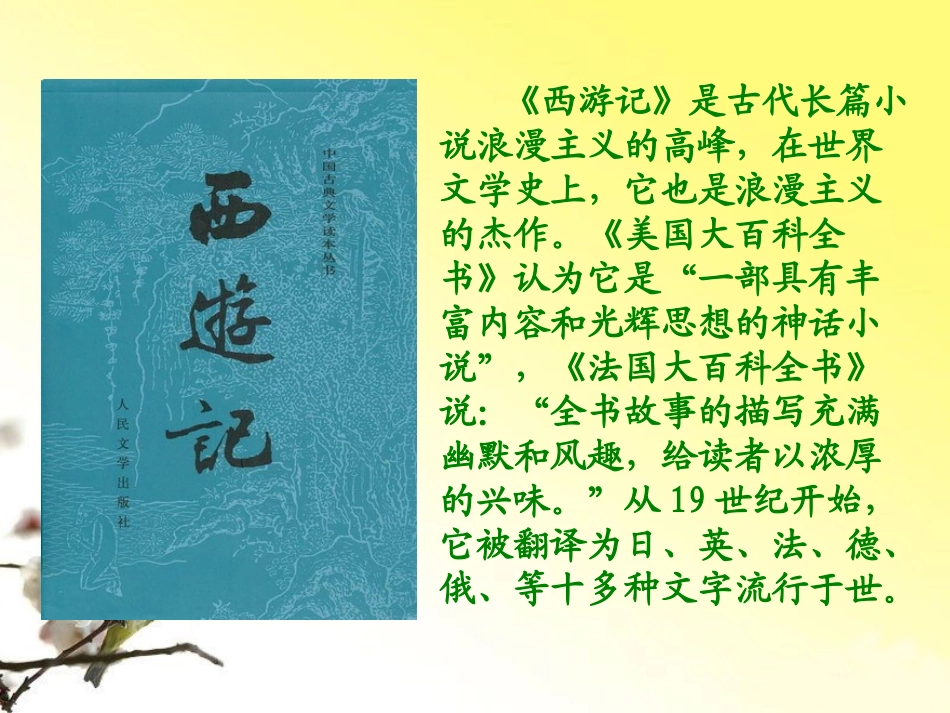 中国古典文学读本丛书
西遊記
人民文学出版社
《西游记》是古代长篇小
说浪漫主义的高峰，在世界
文学史上，它也是浪漫主义
的杰作。《美国大百科全
书》认为它是“一部具有丰
富内容和光辉思想的神话小
说”，《法国大百科全书》
说：“全书故事的描写充满
幽默和风趣，给读者以浓厚
的兴味。”从 19 世纪开始，
它被翻译为日、英、法、德、
俄、等十多种文字流行于世。